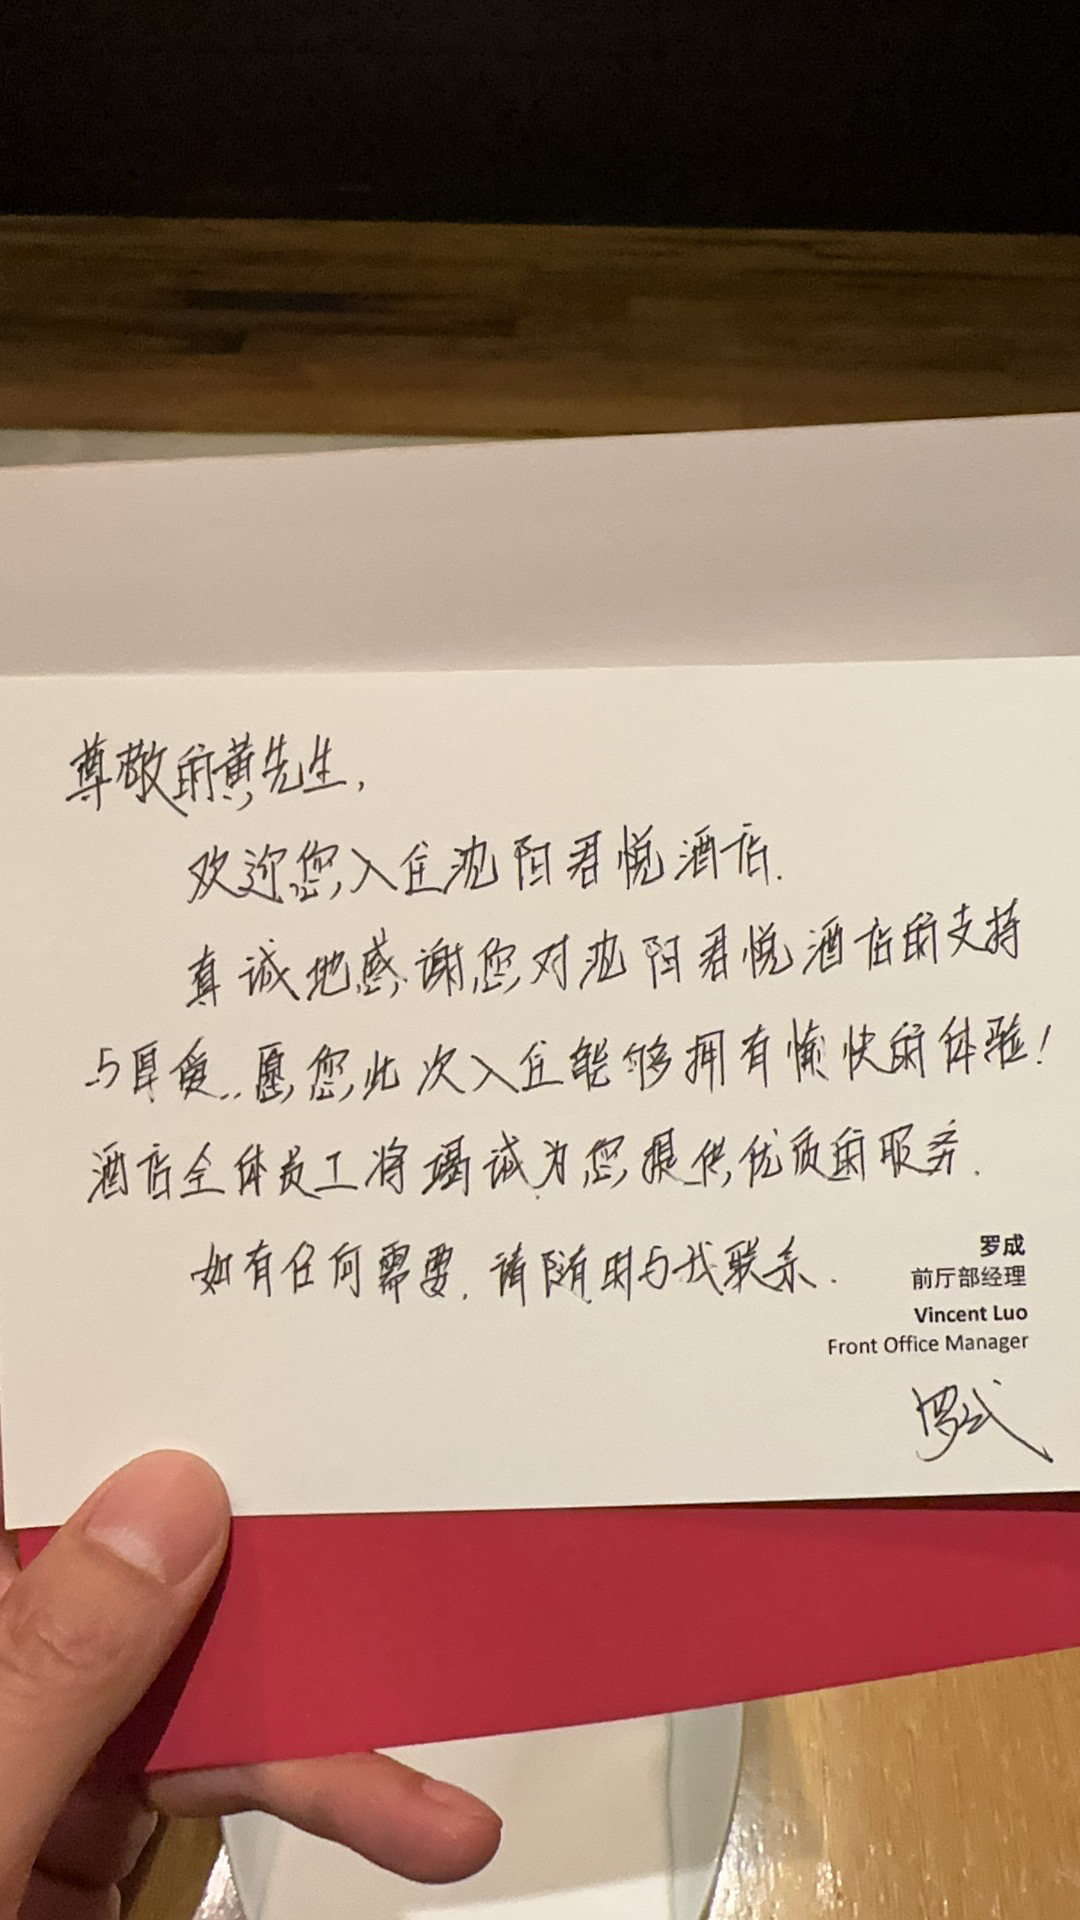 尊敬的黄先生,
欢迎您入住沈阳君悦酒店.
真诚地感谢您对沈阳君悦酒店的支持
与厚爱..愿您此次入住能够拥有愉快的体验!
酒店全体员工将竭诚为您提供优质的服务.
如有任何需要.请随时与我联系.
罗成
前厅部经理
Vincent Luo
Front Office Manager
罗成